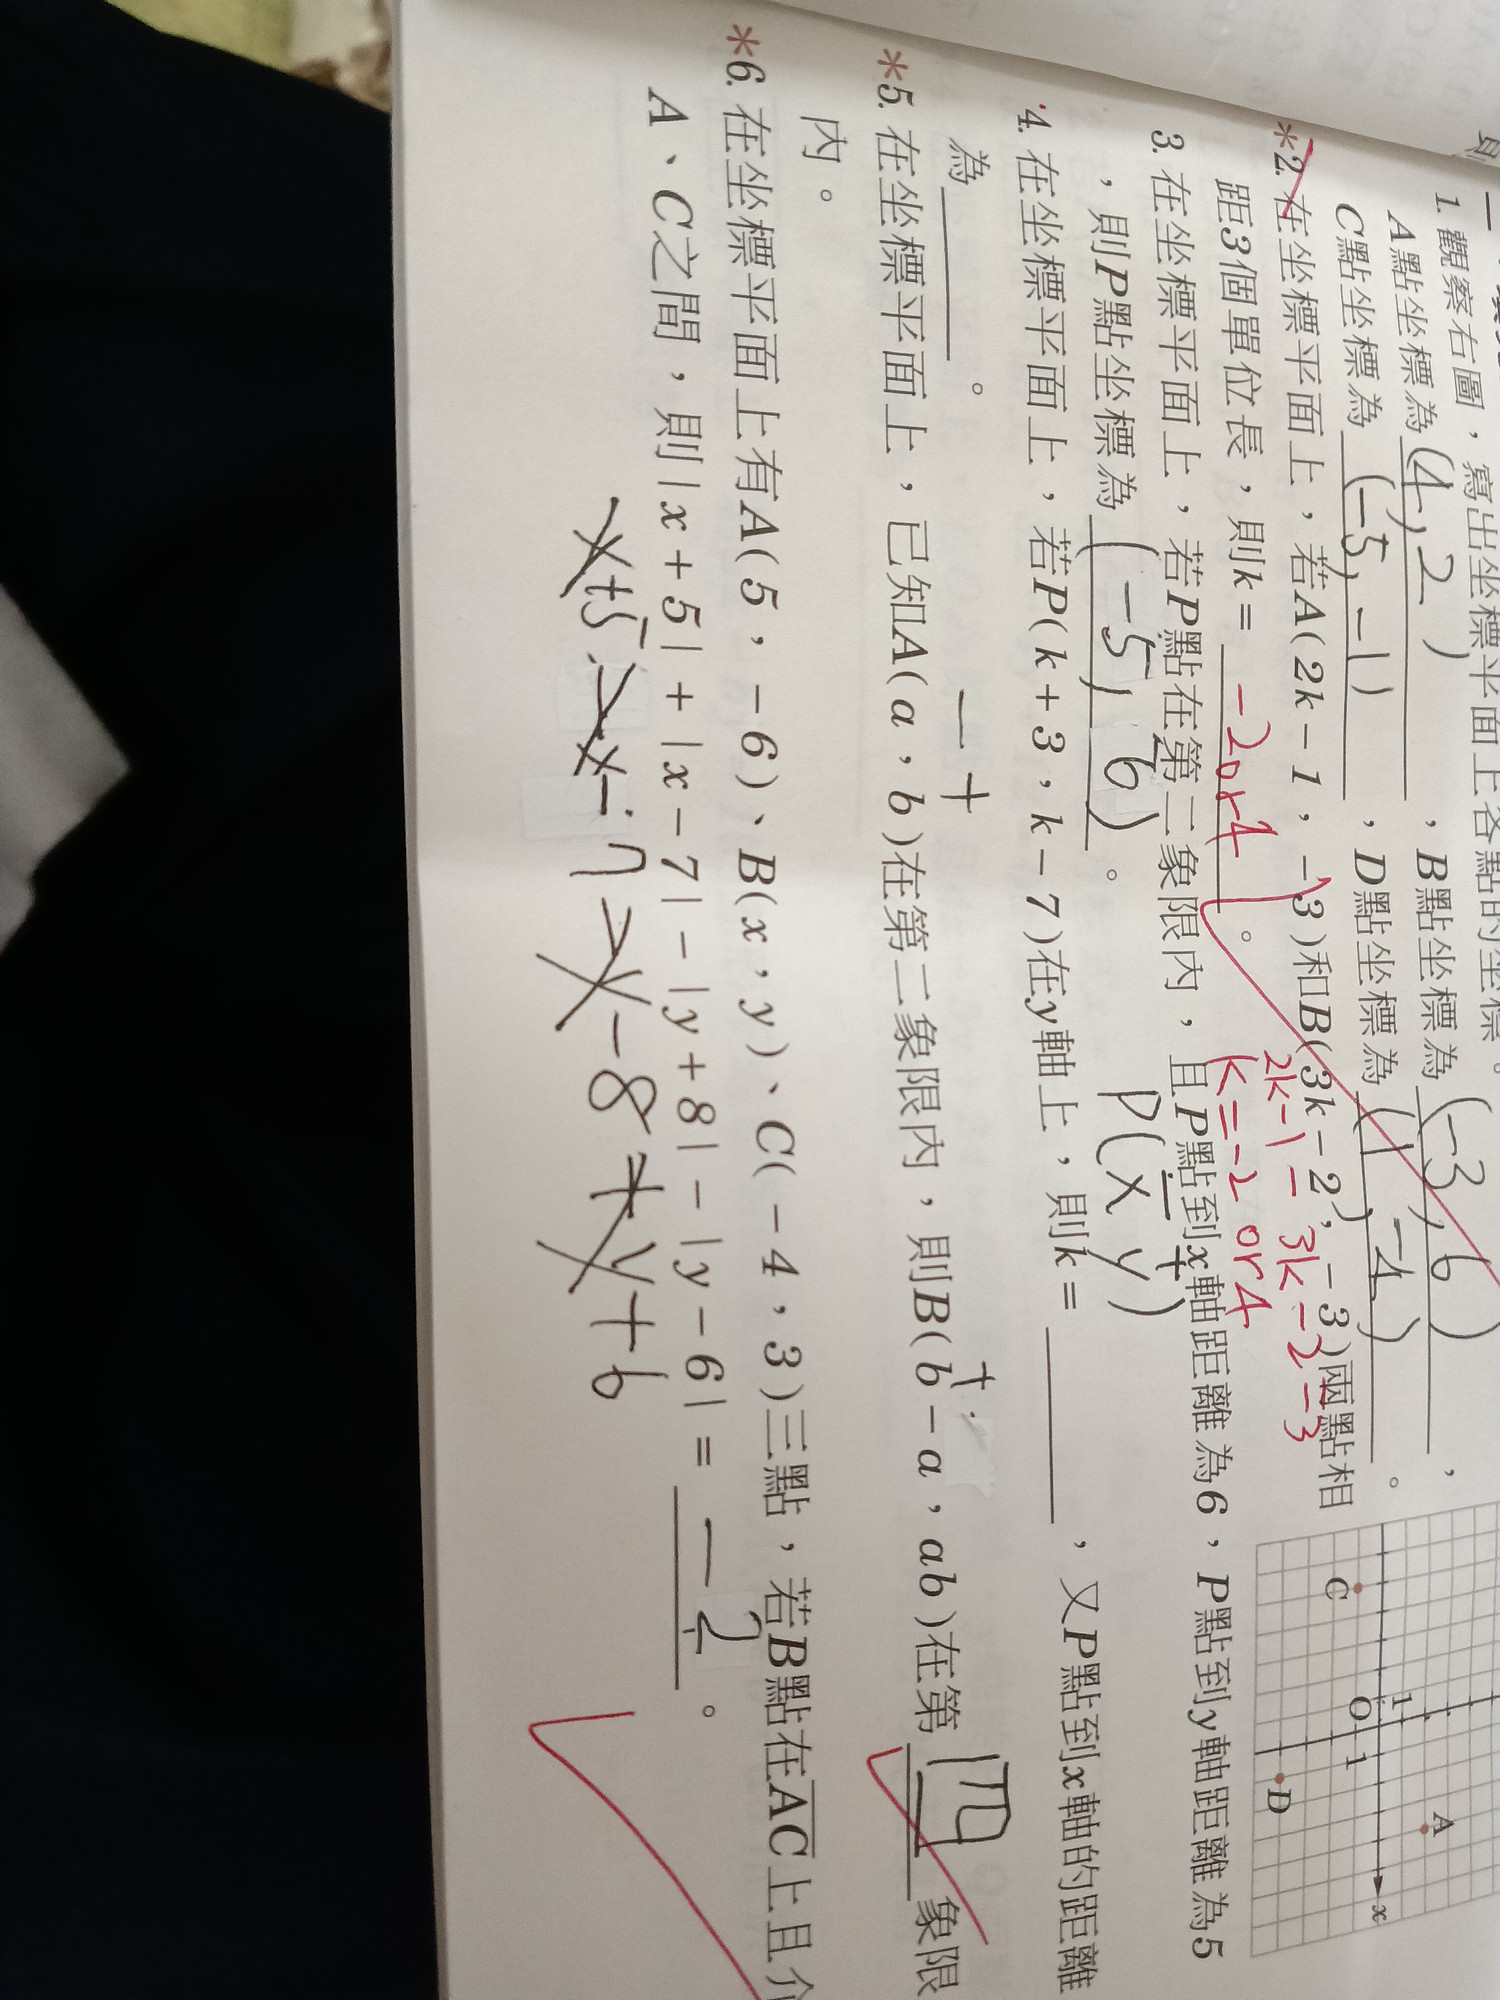 1. 觀察右圖，寫出坐標平面上各點的坐標。
A點坐標為(4,2)，B點坐標為(-3,6)，
C點坐標為(-5,-1)，D點坐標為(1,-4)。
*2. 在坐標平面上，若A(2k-1，-3)和B(3k-2，-3)兩點相
距3個單位長，則k=-2or4。
2k-1-3k-2=3
k=-2 or 4
3. 在坐標平面上，若P點在第二象限內，且P點到x軸距離為6，P點到y軸距離為5
，則P點坐標為(-5,6)。
- +
P(x y)
4. 在坐標平面上，若P(k+3，k-7)在y軸上，則k=，又P點到x軸的距離
為。
- +
+ -
*5. 在坐標平面上，已知A(a，b)在第二象限內，則B(b-a，ab)在第四象限
內。
*6. 在坐標平面上有A(5，-6)、B(x，y)、C(-4，3)三點，若B點在AC上且介
A、C之間，則|x+5|+|x-7|-|y+8|-|y-6|=-2。
x+5-x+7-y-8+y+6
C
O
1
1
D
A
x